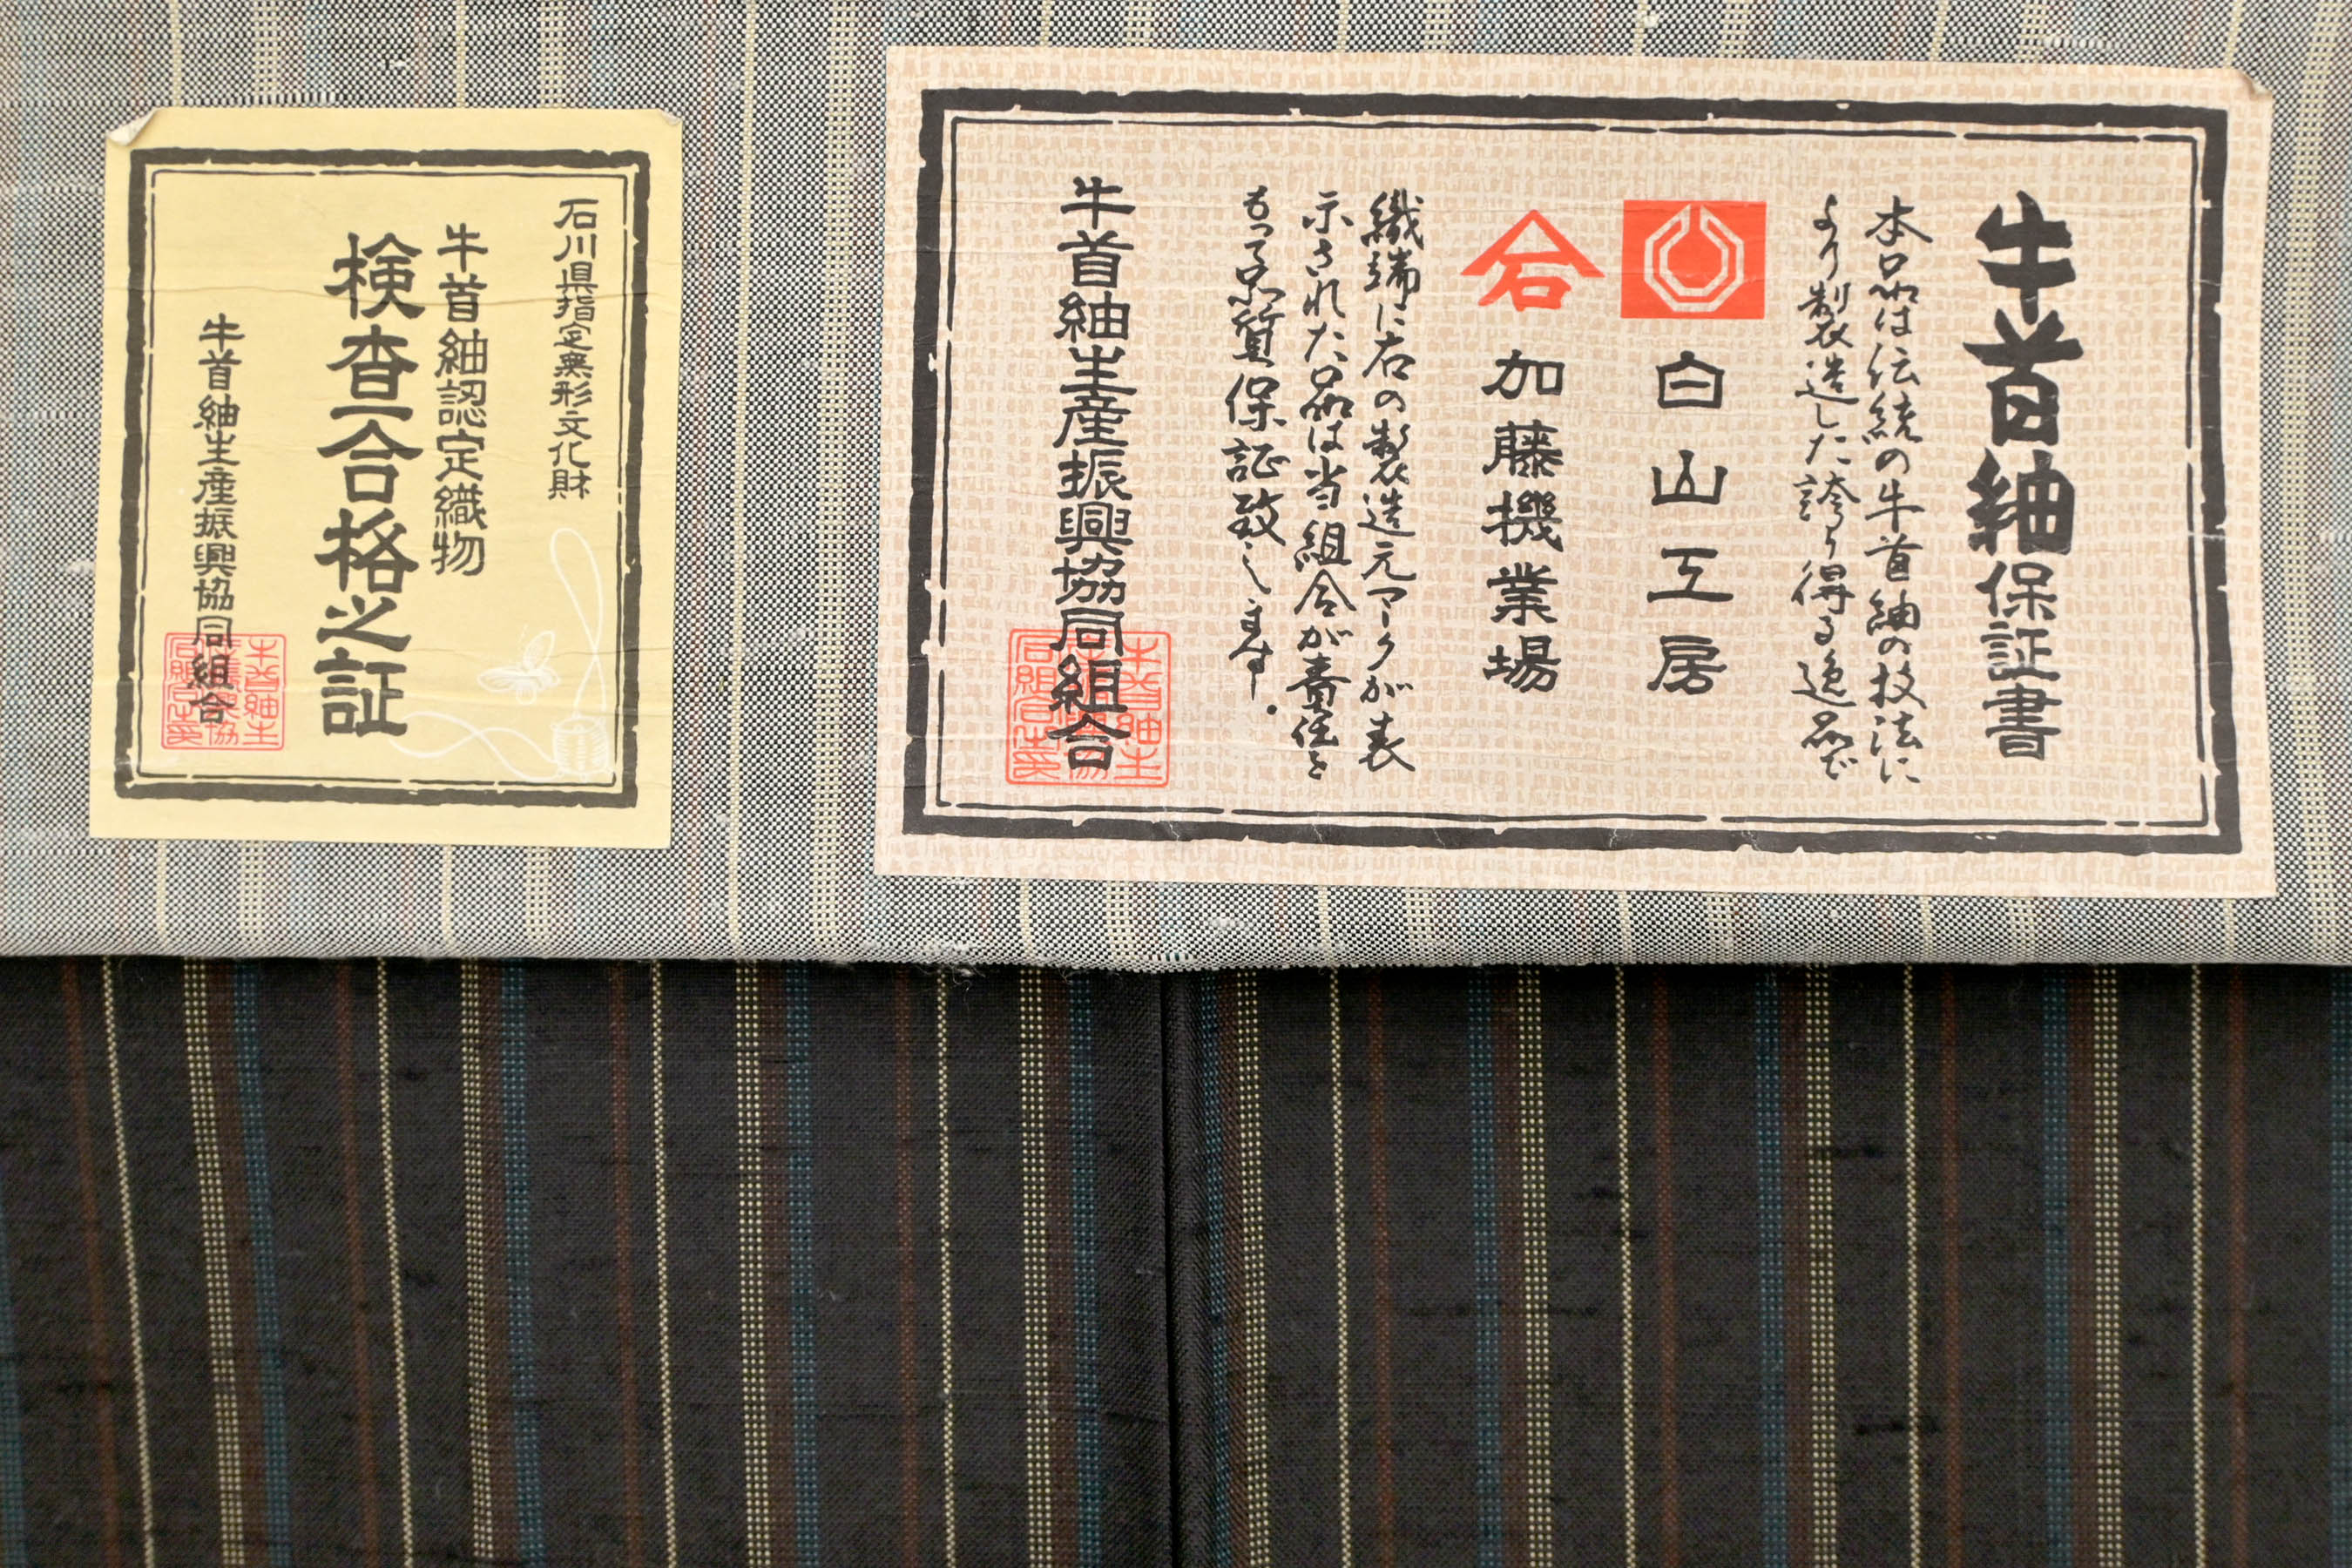 牛首紬保証書
本品は伝統の牛首紬の技法に
より製造した誇り得る逸品で
白山工房
石
加藤機業場
織端に右の製造元マークが表
示された品は当組合が責任を
もって品質保証致します。
牛首紬生産振興協同組合
石川県指定無形文化財
牛首紬認定織物
検査合格之証
牛首紬生産振興協同組合